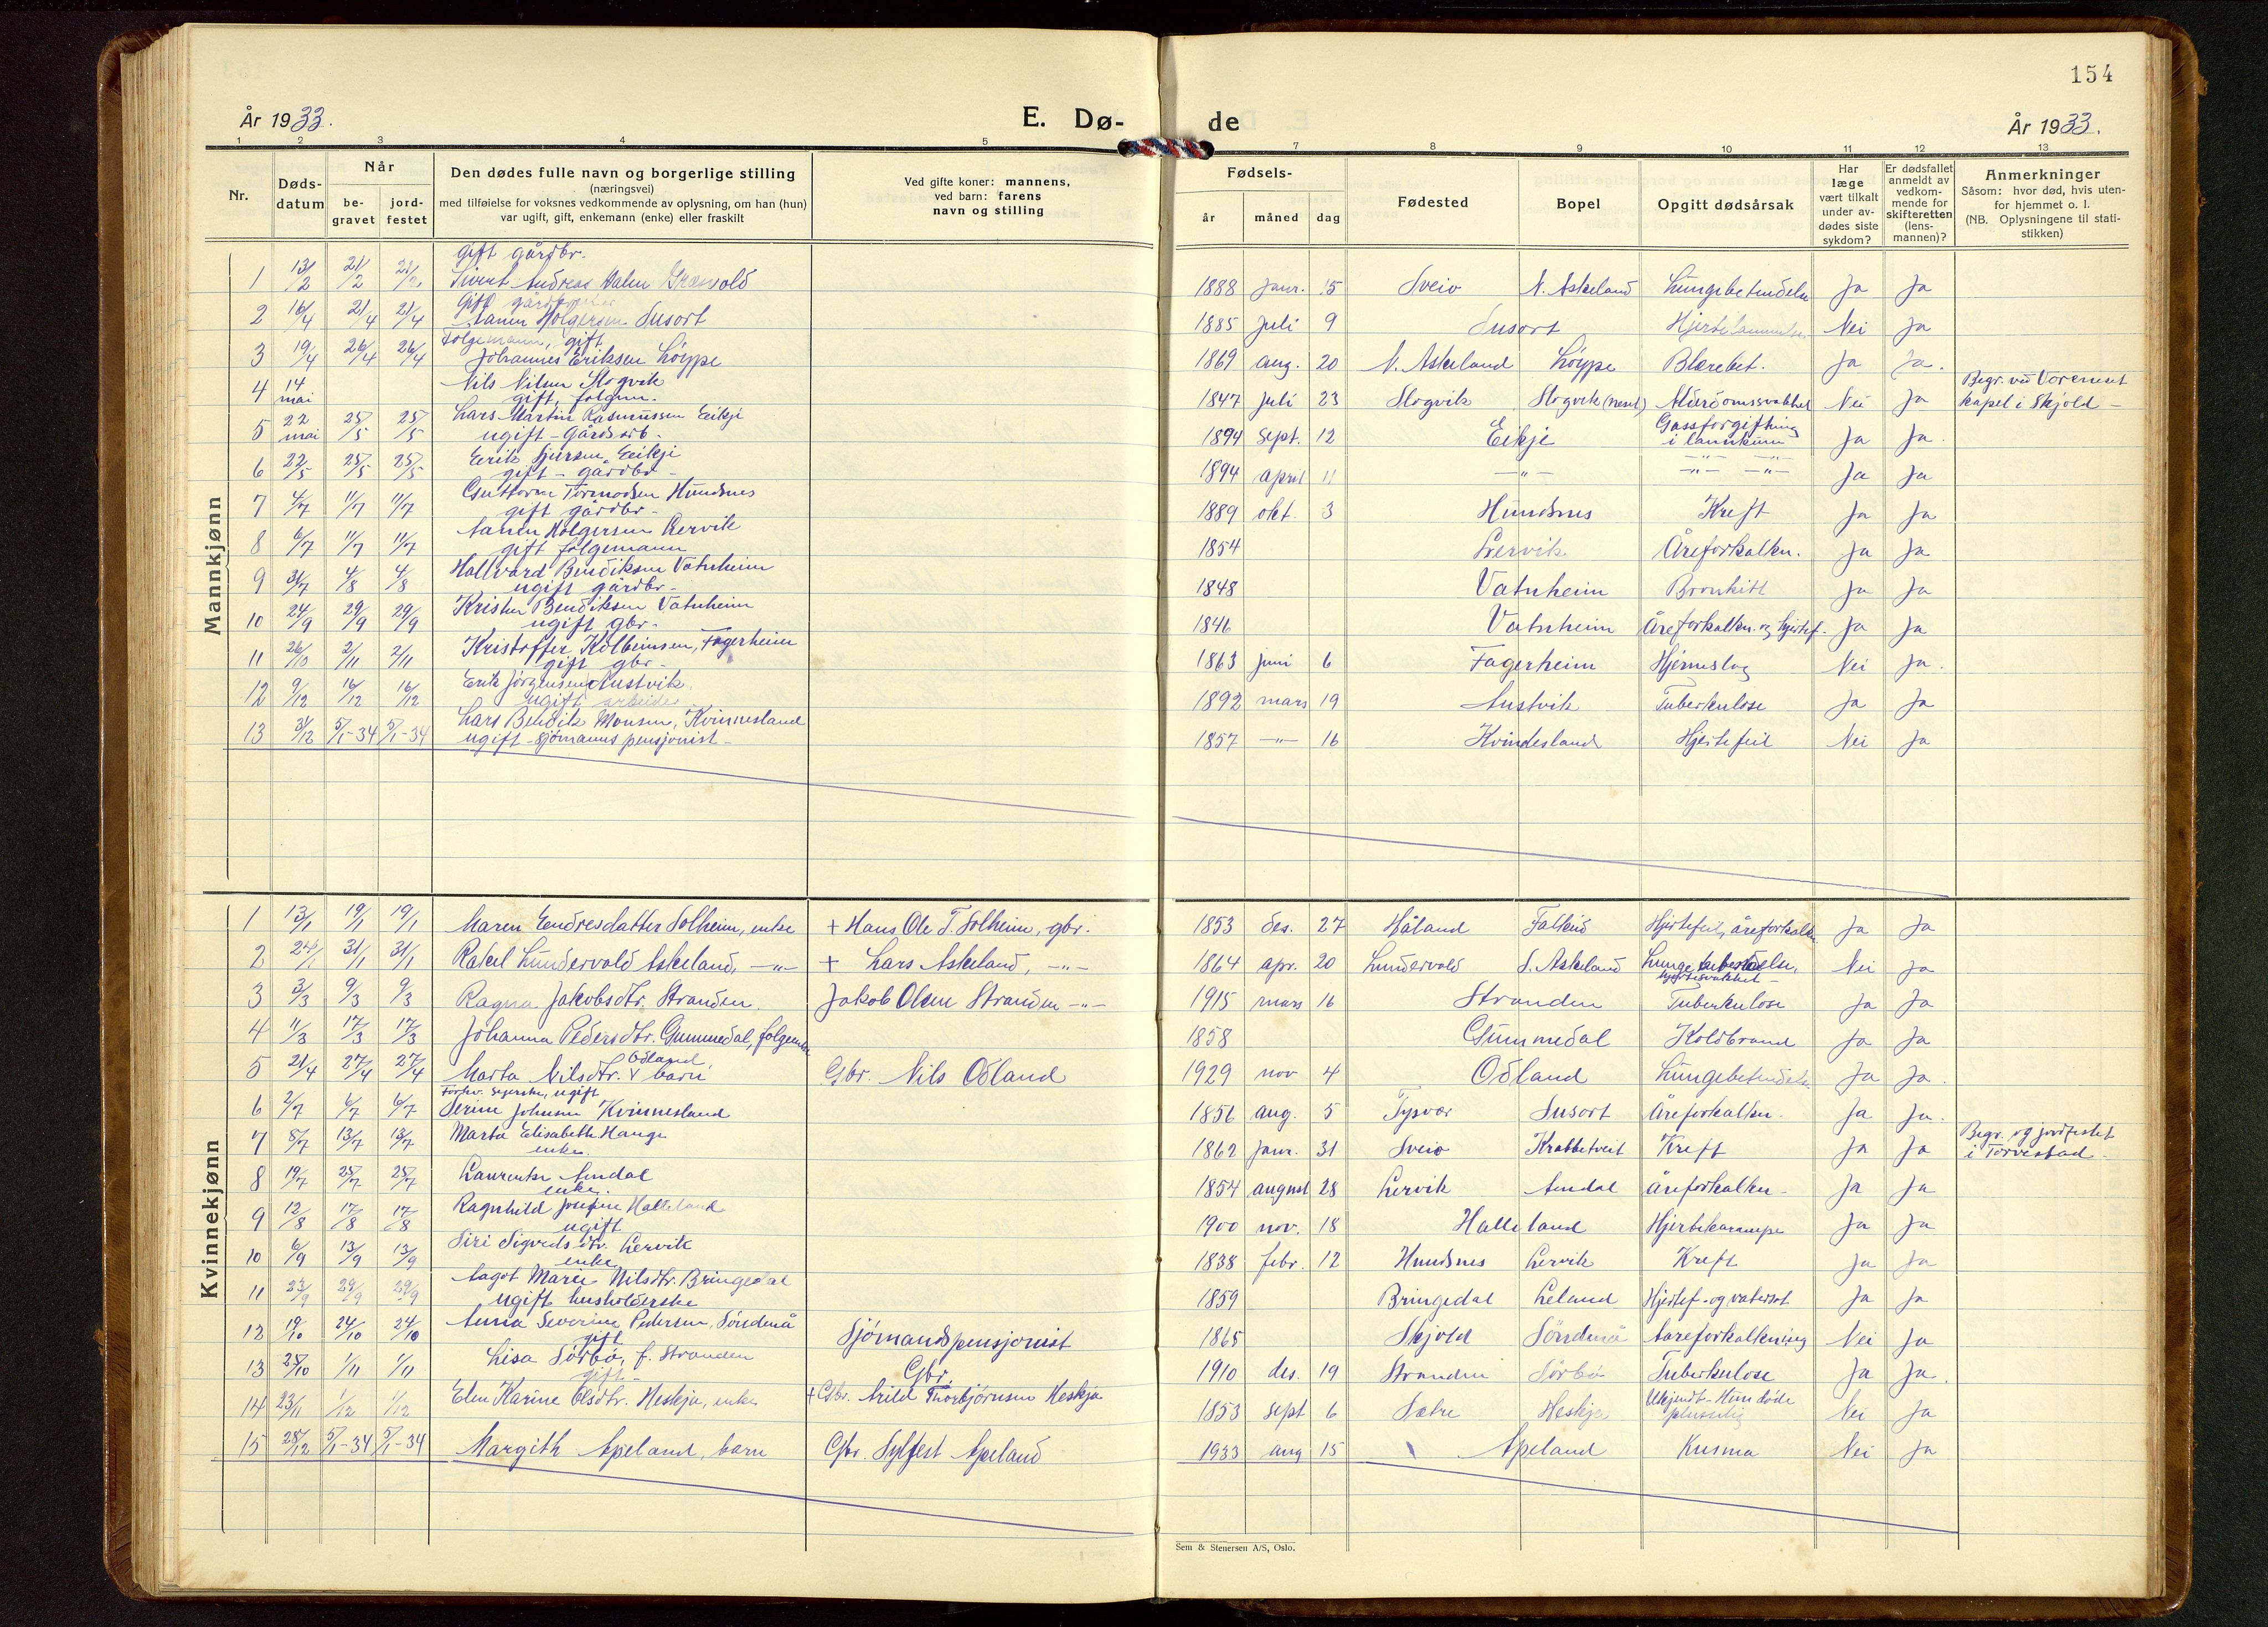 154
År 1933.
E. Dø-
de
År 1933.
1 2 3 4 5 7 8 9 10 11 12 13
Nr.
Døds-
datum
Når
be-
gravet
jord-
festet
Den dødes fulle navn og borgerlige stilling
(næringsvei)
med tilføielse for voksnes vedkommende av oplysning, om han (hun)
var ugift, gift, enkemann (enke) eller fraskilt
Ved gifte koner: mannens,
ved barn: farens
navn og stilling
Fødsels-
år
måned
dag
Fødested
Bopel
Opgitt dødsårsak
Har
læge
vært tilkalt
under av-
dødes siste
sykdom?
Er dødsfallet
anmeldt av
vedkom-
mende for
skifteretten
(lens-
mannen)?
Anmerkninger
Såsom: hvor død, hvis uten-
for hjemmet o. l.
(NB. Oplysningene til stati-
stikken)
Mannkjønn
gift gårdbr.
1 13/2 21/2 21/2 Sivert Andreas Valen 1888 Janr. 15 Sveio N. Askeland Lungebetendelse Ja Ja
Gift
2 16/4 21/4 21/4 Aanen Holgersen Susort 1885 Juli 9 Susort Nei Ja
Følgemann, gift
3 19/4 26/4 26/4 Johannes Eriksen Løype 1869 aug. 20 N. Askeland Løype Blærebet. Ja Ja.
4 14 mai Nils Nilsen Slogvik
gift, følgm. 1847 Juli 23 Slogvik Slogvik (nent) Alderdomssvakhet Nei Ja
Begr. ved Vorement
kapel i Skjold -
5 22 mai 25/5 25/5 Lars Martin Rasmussen Eikje
ugift - Gårdsarb - 1894 Sept. 12 Eikje Gassforgiftning
i Ja Ja.
6 22/5 25/5 25/5 Erik Sjursen Eikje
gift - gårdbr - 1894 april 11 -"- -"- -"- Ja Ja
7 4/7 11/7 11/7 Guttorm Tormodsen Hundsnes
gift gårdbr - 1889 okt. 3 Hundsnes Kreft Ja Ja
8 6/7 11/7 11/7 Aanen Holgersen Lervik
gift følgemann 1854 Lervik Åreforkalkn. Ja Ja
9 31/7 4/8 4/8 Hallvard Bendiksen Vatnheim
ugift gårdbr - 1848 Vatnheim Bronkitt Ja Ja
10 24/9 29/9 29/9 Kristen Bendiksen Vatnheim
ugift gbr - 1846 Vatnheim Åreforkalkn. og hjertef. Ja Ja
11 26/10 2/11 2/11 Kristoffer Kolbeinsen, Fagerheim
gift gbr - 1863 Juni 6 Fagerheim Hjerneslag Nei Ja.
12 9/12 16/12 16/12 Erik Jørgensen Austvik
ugift arbeider 1892 mars 19 Austvik Tuberkulose Ja Ja
13 31/12 5/1-34 5/1-34 Lars Bendik Monsen, Kvinnesland
ugift - sjømanns pensjonist - 1857 -"- 16 Kvindesland Hjertefeil Nei Ja
Kvinnekjønn
1 13/1 19/1 19/1 Maren Endresdatter Solheim, enke + Hans Ole T. Solheim, gbr. 1853 des. 27 Håland Falkeid Hjertefeil, åreforkalkn Ja Ja
2 24/1 31/1 31/1 Rakel Lundervold Askeland, -"- + Lars Askeland, -"- 1864 apr. 20 Lundervold S. Askeland Lungebetendelse,
hjertesvakhet - Nei Ja
3 3/3 9/3 9/3 Ragna Jakobsdtr. Stranden Jakob Olsen Stranden -"- 1915 mars 16 Stranden Tuberkulose Ja Ja
4 11/3 17/3 17/3 Johanna Pedersdtr. Gummedal, følgenke 1858 Gummedal Koldbrand Ja Ja
5 21/4 27/4 27/4 Marta Nilsdtr. Odland barn Gbr. Nils Odland 1929 nov 4 Odland Lungebetendelse Ja Ja.
6 2/7 6/7 6/7 Forhv. syerske, ugift
Serine Johnsen Kvinnesland 1856 aug. 5 Tysvær Susort Åreforkalkn. Ja Ja.
7 8/7 13/7 13/7 Marta Elisabeth Hauge
enke. 1862 Janr. 31 Sveio Krabbetveit Kreft Ja Ja
Begr. og jordfestet
i Torvestad -
8 19/7 25/7 25/7 Laurentse Amdal
enke. 1854 august 28 Lervik Amdal Åreforkalkn - Ja Ja
9 12/8 17/8 17/8 Ragnhild Josefine Halleland
ugift 1900 nov. 18 Halleland Hjertekrampe Ja Ja
10 6/9 13/9 13/9 Siri Sigvedsdtr. Lervik
enke 1838 febr. 12 Hundsnes Lervik Kreft Ja Ja
11 23/9 29/9 29/9 Aagot Marie Nilsdtr. Bringedal
Ugift husholderske 1859 Bringedal Leland Hjertef - og vatersot Ja Ja
12 19/10 24/10 24/10 Anna Severine Pedersen, Søndenå
gift Sjömandspensjonist 1865 Skjold Söndenå Aareforkalkning Nei Ja
13 25/10 1/11 1/11 Lisa Sørbø, f. Stranden
gift - Gbr. 1910 des. 19 Stranden Sørbø Tuberkulose Ja Ja.
14 23/11 1/12 1/12 Elen Karine Olsdtr. Heskja, enke + Gbr. Arild Thorbjørnsen Heskja 1853 Sept 6 Sætre Heskja Ukjendt - Hun døde
plutselig Nei Ja
15 28/12 5/1-34 5/1-34 Margith Apeland, barn Gbr. Sylfest Apeland 1933 aug 15 Apeland Kusma Nei Ja
Sem & Stenersen A/S, Oslo.